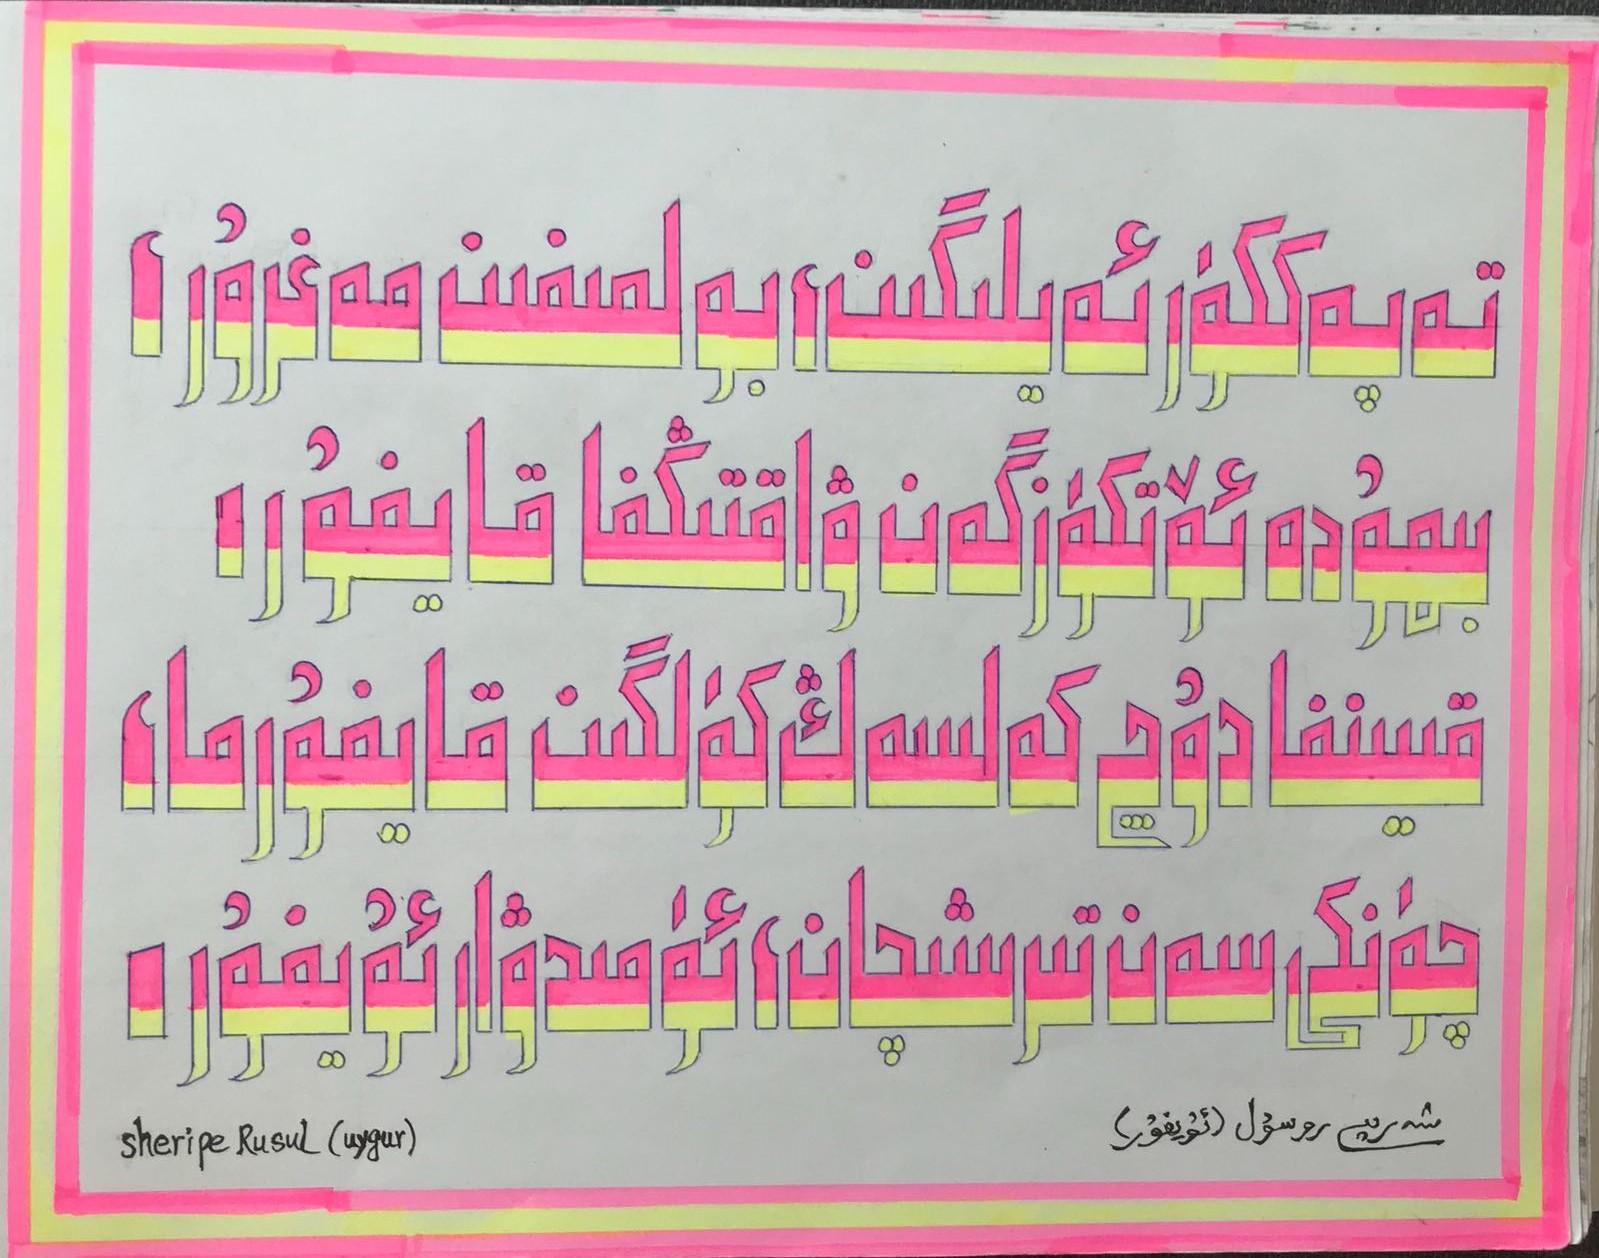 تەپەككۈر ئەيلىگىن، بولمىغىن مەغرۇر،
بىھۇدە ئۆتكۈزگەن ۋاقتىڭغا قايغۇر.
قىينغا دۇچ كەلسەڭ كۈلگىن قايغۇرما،
چۈنكى سەن تىرىشچان، ئۈمىدۋار ئۇيغۇر.
sheripe Rusul (uygur)
شەرىپە روسۇل (ئۇيغۇر)